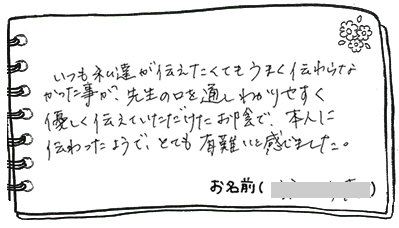 いつも私達が伝えたくてもうまく伝わらな
かった事が、先生の口を通しわかりやすく
優しく伝えていただけたお陰で、本人に
伝わったようで、とても有難いと感じました。
お名前( )